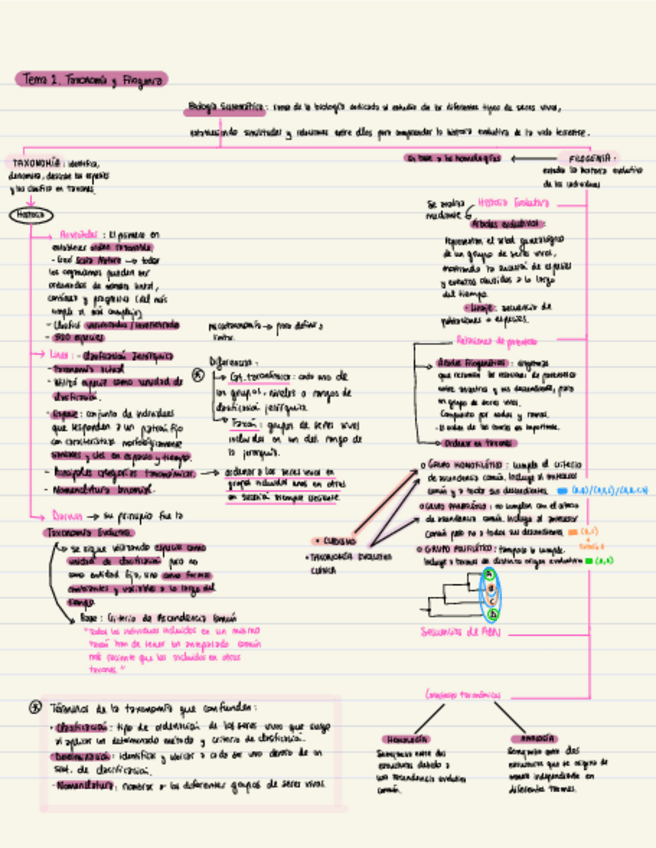 Tema 1. Taxonomía y Filogenia
Biología Sistemática: rama de la biología dedicada al estudio de los diferentes tipos de seres vivos,
estableciendo similitudes y relaciones entre ellos para comprender la historia evolutiva de la vida terrestre.
TAXONOMÍA: identifica,
denomina, describe las especies
y las clasifica en taxones.
Historia
Aristóteles: El primero en
establecer
- Creó Scala Natura → todos
los organismos pueden ser
ordenados de manera lineal,
continua y progresiva (del más
simple al más complejo)
- Clasificó vertebrados/invertebrados
- 500 especies
Linneo: - Clasificación Jerárquica
- Taxonomía actual
- Utilizó especie como unidad de
clasificación.
- Especie: conjunto de individuos
que responden a un patrón fijo
con características morfológicamente
similares y fijas en espacio y tiempo.
- Principales categorías taxonómicas → ordenar a los seres vivos en
grupos incluidos unos en otros
en sentido siempre creciente
- Nomenclatura binomial.
→ para definir y
Diferencia:
Cat. taxonómica: cada uno de
los grupos, niveles o rangos de
clasificación jerárquica
Taxón: grupos de seres vivos
incluidos en un del rango de
la jerarquía.
Darwin → su principio fue la
Taxonomía Evolutiva
Se sigue utilizando especie como
unidad de clasificación pero no
como entidad fija, sino como formas
cambiantes y variables a lo largo del
tiempo.
Base: Criterio de Ascendencia Común
"Todos los individuos incluidos en un mismo
taxón han de tener un antepasado común
más reciente que los incluidos en otros
taxones."
En base a las homologías
FILOGENIA:
estudia la historia evolutiva
de los individuos
Se analiza
mediante
Historia Evolutiva
Árboles evolutivos:
representan el árbol genealógico
de un grupo de seres vivos,
mostrando la sucesión de especies
y eventos ocurridos a lo largo
del tiempo.
- Linaje: secuencia de
poblaciones o especies.
Relaciones de parentesco
Árboles filogenéticos: diagramas
que resumen las relaciones de parentesco
entre ancestros y sus descendientes, para
un grupo de seres vivos.
Compuesto por nodos y ramas.
Ordenar en taxones
GRUPO MONOFILÉTICO: cumple el criterio
de ascendencia común. Incluye al ancestro
común y a todos sus descendientes.
GRUPO PARAFILÉTICO: no cumplen con el criterio
de ascendencia común. Incluye al ancestro
común pero no a todos sus descendientes. (B,C)
GRUPO POLIFILÉTICO: tampoco lo cumple.
Incluye a taxones de distinto origen evolutivo (A,D)
• CLADISMO
• TAXONOMÍA EVOLUTIVA
CLÁSICA
A
B
C
D
Secuencias de ADN
Caracteres taxonómicos
HOMOLOGÍA
Semejanza entre dos
estructuras debido a
una ascendencia evolutiva
común.
ANALOGÍA
Semejanza entre dos
estructuras que se origina de
manera independiente en
diferentes taxones.
Términos de la taxonomía que confunden:
- Clasificación: tipo de ordenación de los seres vivos que surge
al aplicar un determinado método y criterio de clasificación.
Determinación: identificar y ubicar a cada ser vivo dentro de un
sist. de clasificación.
- Nomenclatura: nombrar a los diferentes grupos de seres vivos.